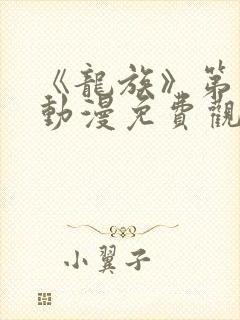 《龍族》第
動漫免費觀
小翼子